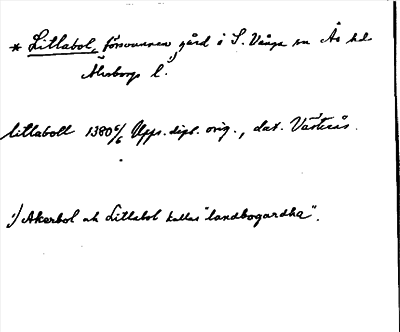 * Litlabol, försvunnen gård i S. Vånga sn Ås hd
Älvsborgs l.
litlaboll 1380 6/6 Upps. dipl. orig., dat. Västerås.
1) Akerbol och Litlabol kallas "landbogardha".